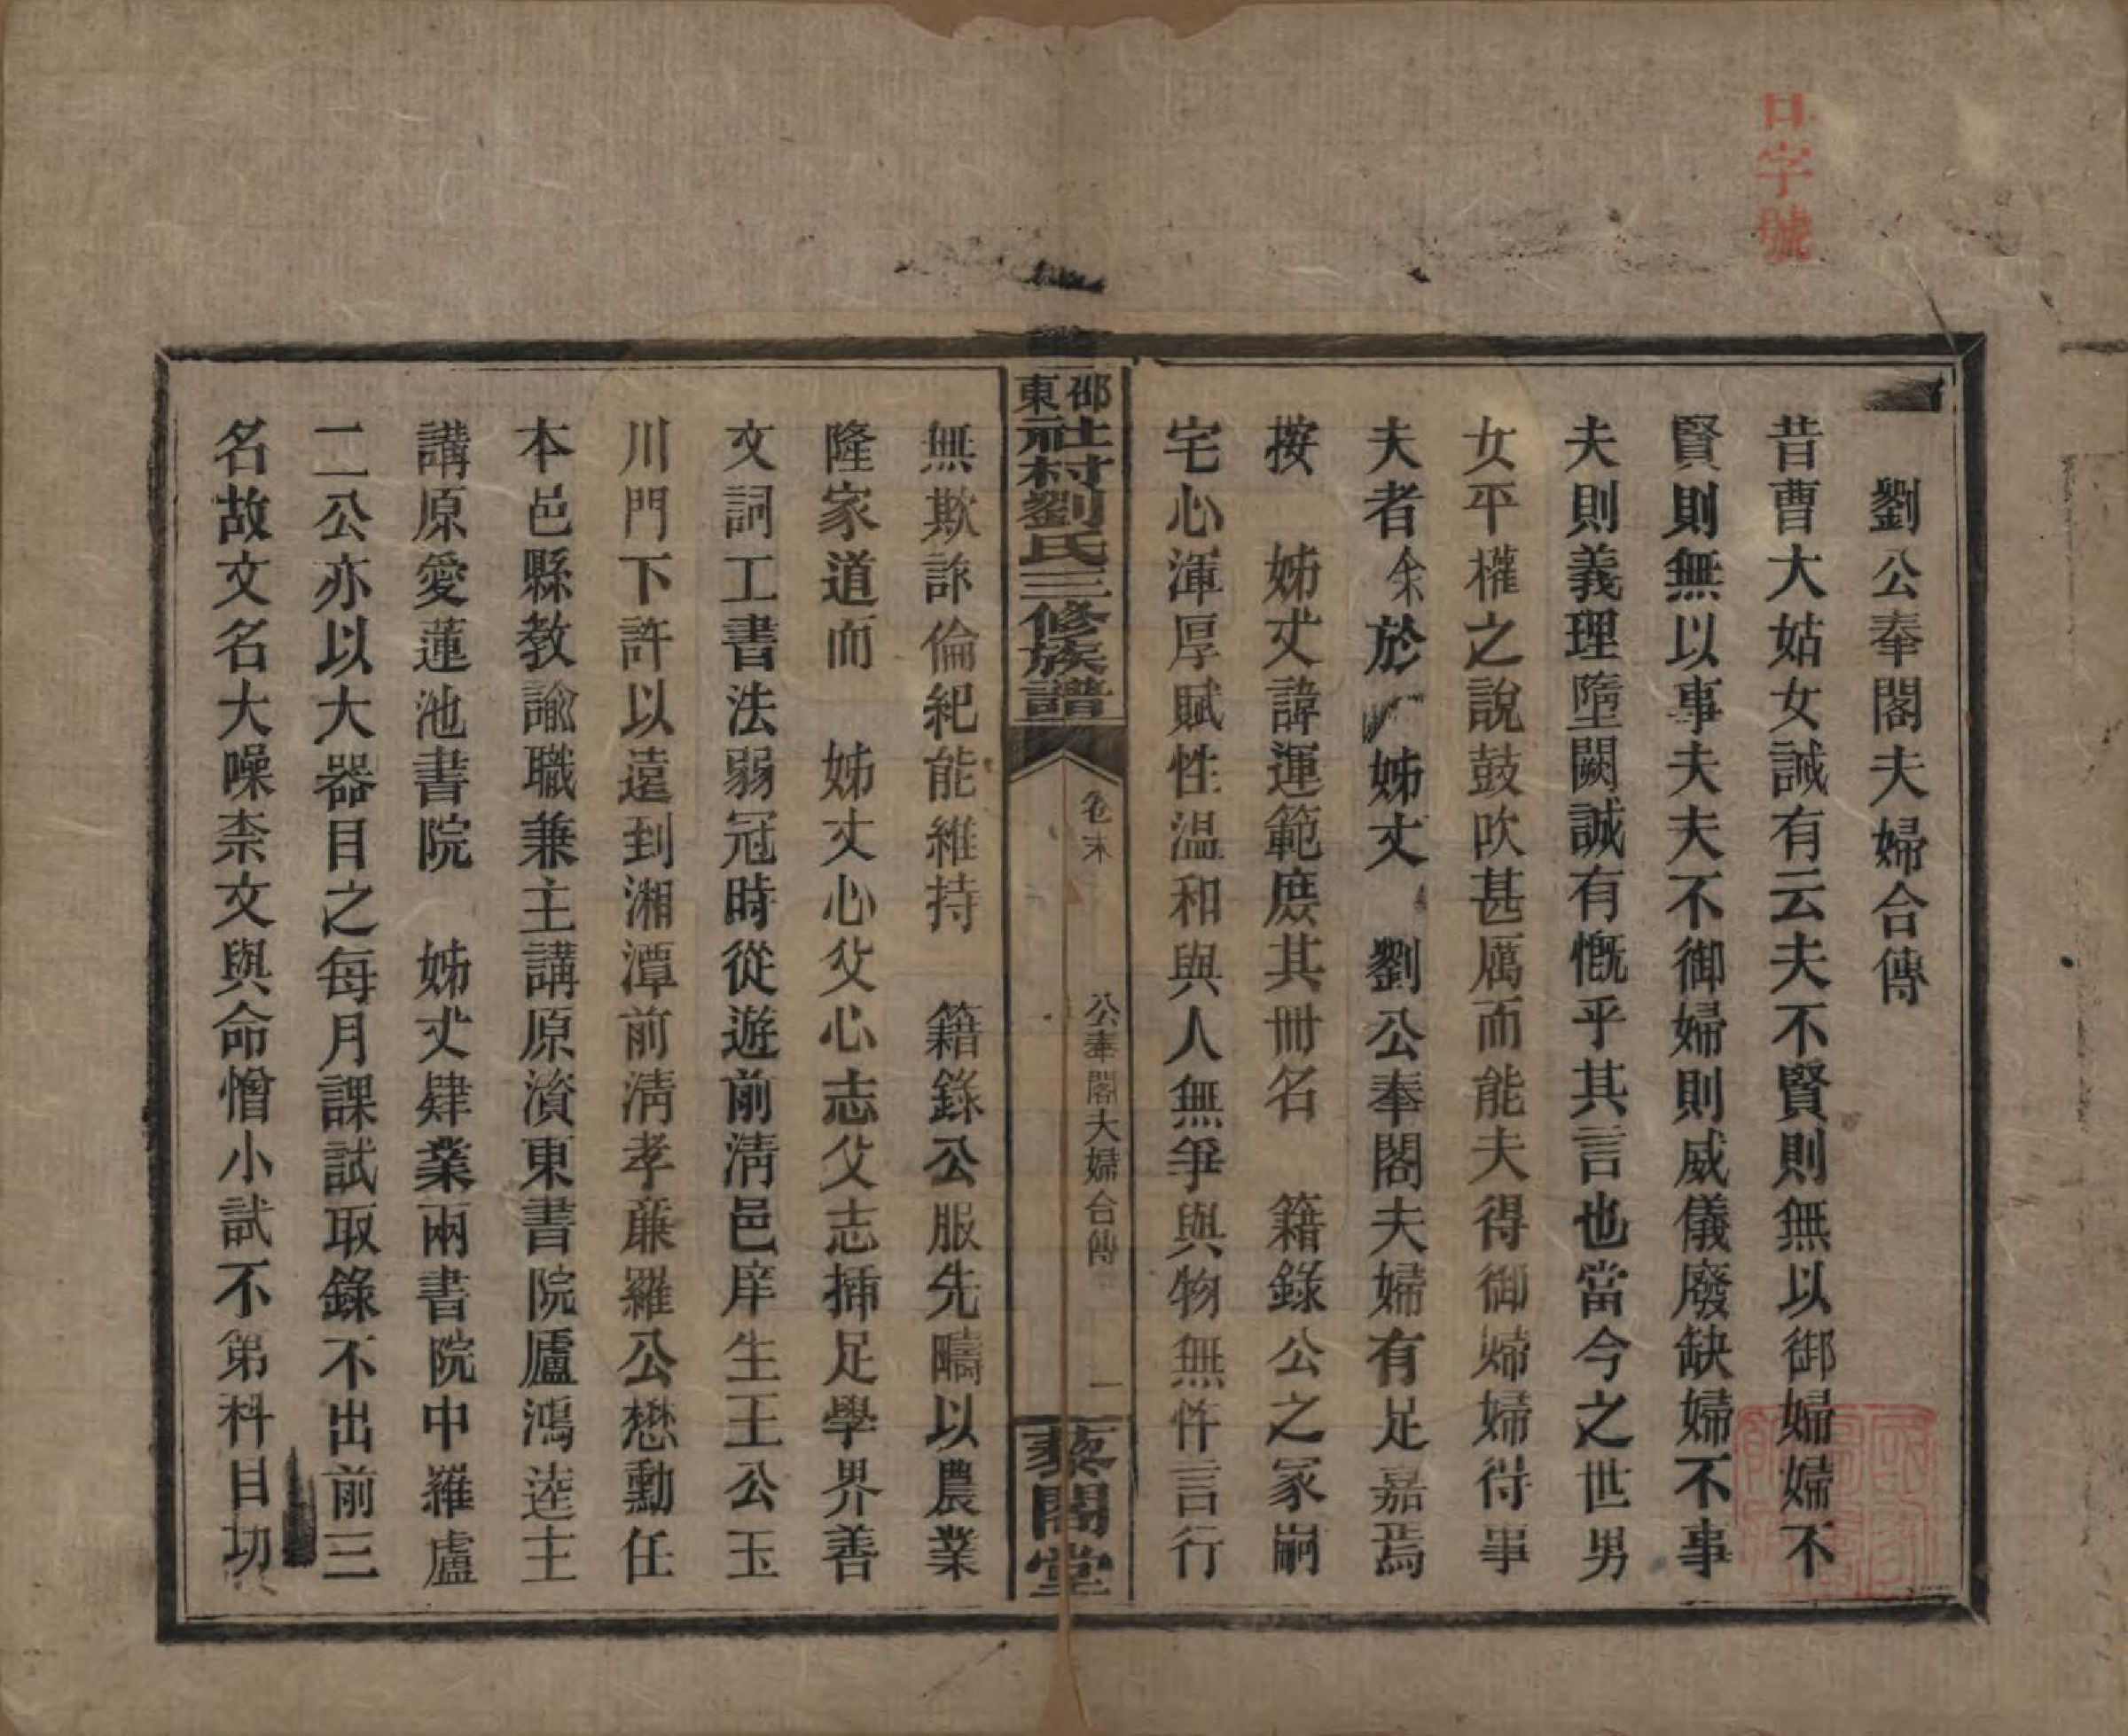 字號
劉公奉閣夫婦合傳
昔曹大姑女誡有云夫不賢則無以御婦婦不
賢則無以事夫夫不御婦則威儀廢缺婦不事
夫則義理墮闕誠有慨乎其言也當今之世男
女平權之說鼓吹甚厲而能夫得御婦婦得事
夫者余於 姊丈 劉公奉閣夫婦有足嘉焉
按 姊丈諱運範庹其冊名 籍錄公之冢嗣
宅心渾厚賦性温和與人無爭與物無忤言行
邵東社村劉氏三修族譜 卷末 公奉閣夫婦合傳 一 藜閣堂
無欺詐倫紀能維持 籍錄公服先疇以農業
隆家道而 姊丈心父心志父志揷足學界善
文詞工書法弱冠時從遊前淸邑庠生王公玉
川門下許以遠到湘潭前淸孝亷羅公懋勳任
本邑縣教諭職兼主講原濱東書院廬鴻逵主
講原愛蓮池書院 姊丈肄業兩書院中羅盧
二公亦以大器目之每月課試取錄不出前三
名故文名大噪柰文與命憎小試不第科目功